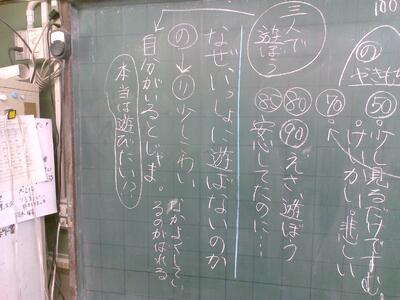 100
の
やきもち
50 少し見るだけですむ。
けいかい 悲しい
70
90 えさ遊ぼう
80 安心してたのに…
80
三人で
遊ぼう
なぜいっしょに遊ばないのか
の→り 少しこわい
自分がいるとじゃま。
本当は遊びたい!?